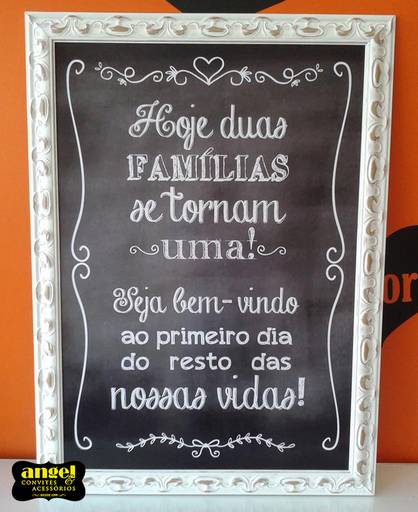 Hoje duas
FAMÍLIAS
se tornam
uma!
Seja bem-vindo
ao primeiro dia
do resto das
nossas vidas!
or
angel
CONVITES &
ACESSÓRIOS